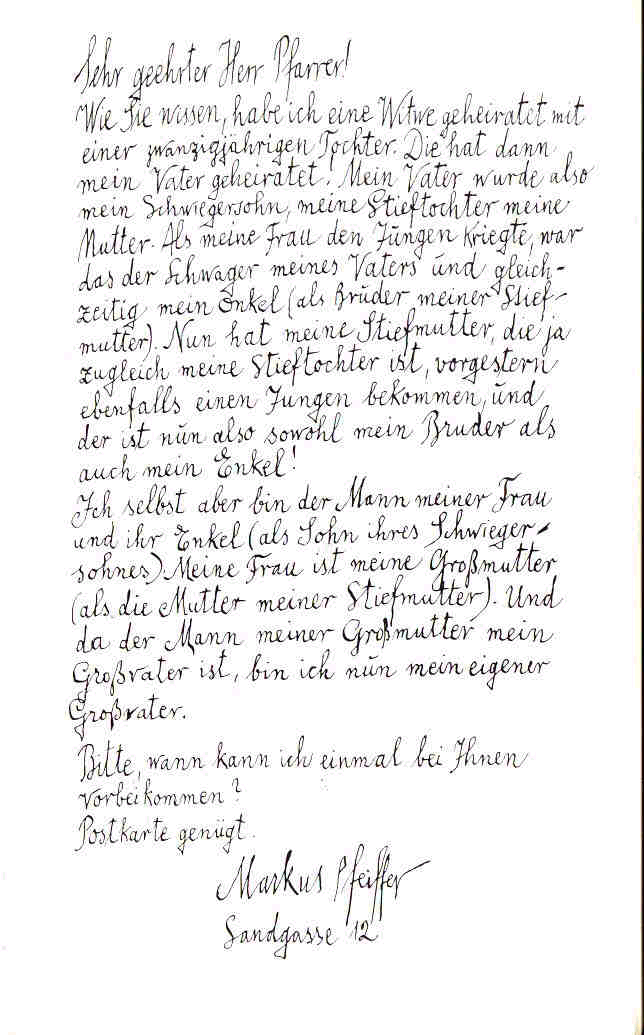 Sehr geehrter Herr Pfarrer!
Wie Sie wissen, habe ich eine Witwe geheiratet mit
einer zwanzigjährigen Tochter. Die hat dann
mein Vater geheiratet! Mein Vater wurde also
mein Schwiegersohn, meine Stieftochter meine
Mutter. Als meine Frau den Jungen kriegte, war
das der Schwager meines Vaters und gleich-
zeitig mein Onkel (als Bruder meiner Stief-
mutter). Nun hat meine Stiefmutter, die ja
zugleich meine Stieftochter ist, vorgestern
ebenfalls einen Jungen bekommen, und
der ist nun also sowohl mein Bruder als
auch mein Enkel!
Ich selbst aber bin der Mann meiner Frau
und ihr Enkel (als Sohn ihres Schwieger-
sohnes). Meine Frau ist meine Großmutter
(als die Mutter meiner Stiefmutter). Und
da der Mann meiner Großmutter mein
Großvater ist, bin ich nun mein eigener
Großvater.
Bitte, wann kann ich einmal bei Ihnen
vorbeikommen?
Postkarte genügt.
Markus Pfeiffer
Sandgasse 12